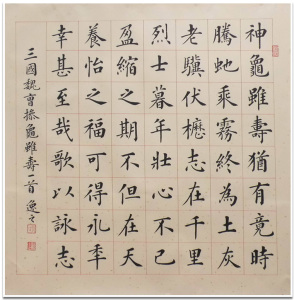 神龜雖壽猶有竟時
騰虵乘霧終為土灰
老驥伏櫪志在千里
烈士暮年壯心不已
盈縮之期不但在天
養怡之福可得永年
幸甚至哉歌以詠志
三國魏曹操龜雖壽一首逸之